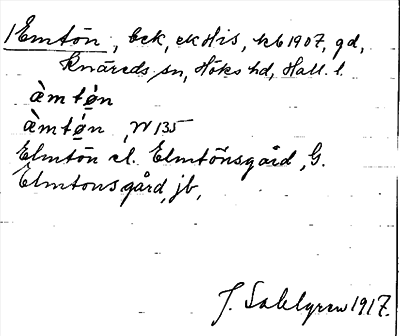 1 Emtön, Eck, ekHis, kb 1907, gd,
Knäreds sn, Höks hd, Hall. l.
àmtø̀n
àmtø̀n, W 135
Elmtön el. Elmtönsgård, G.
Elmtonsgård, jb,
J. Sahlgren 1917.